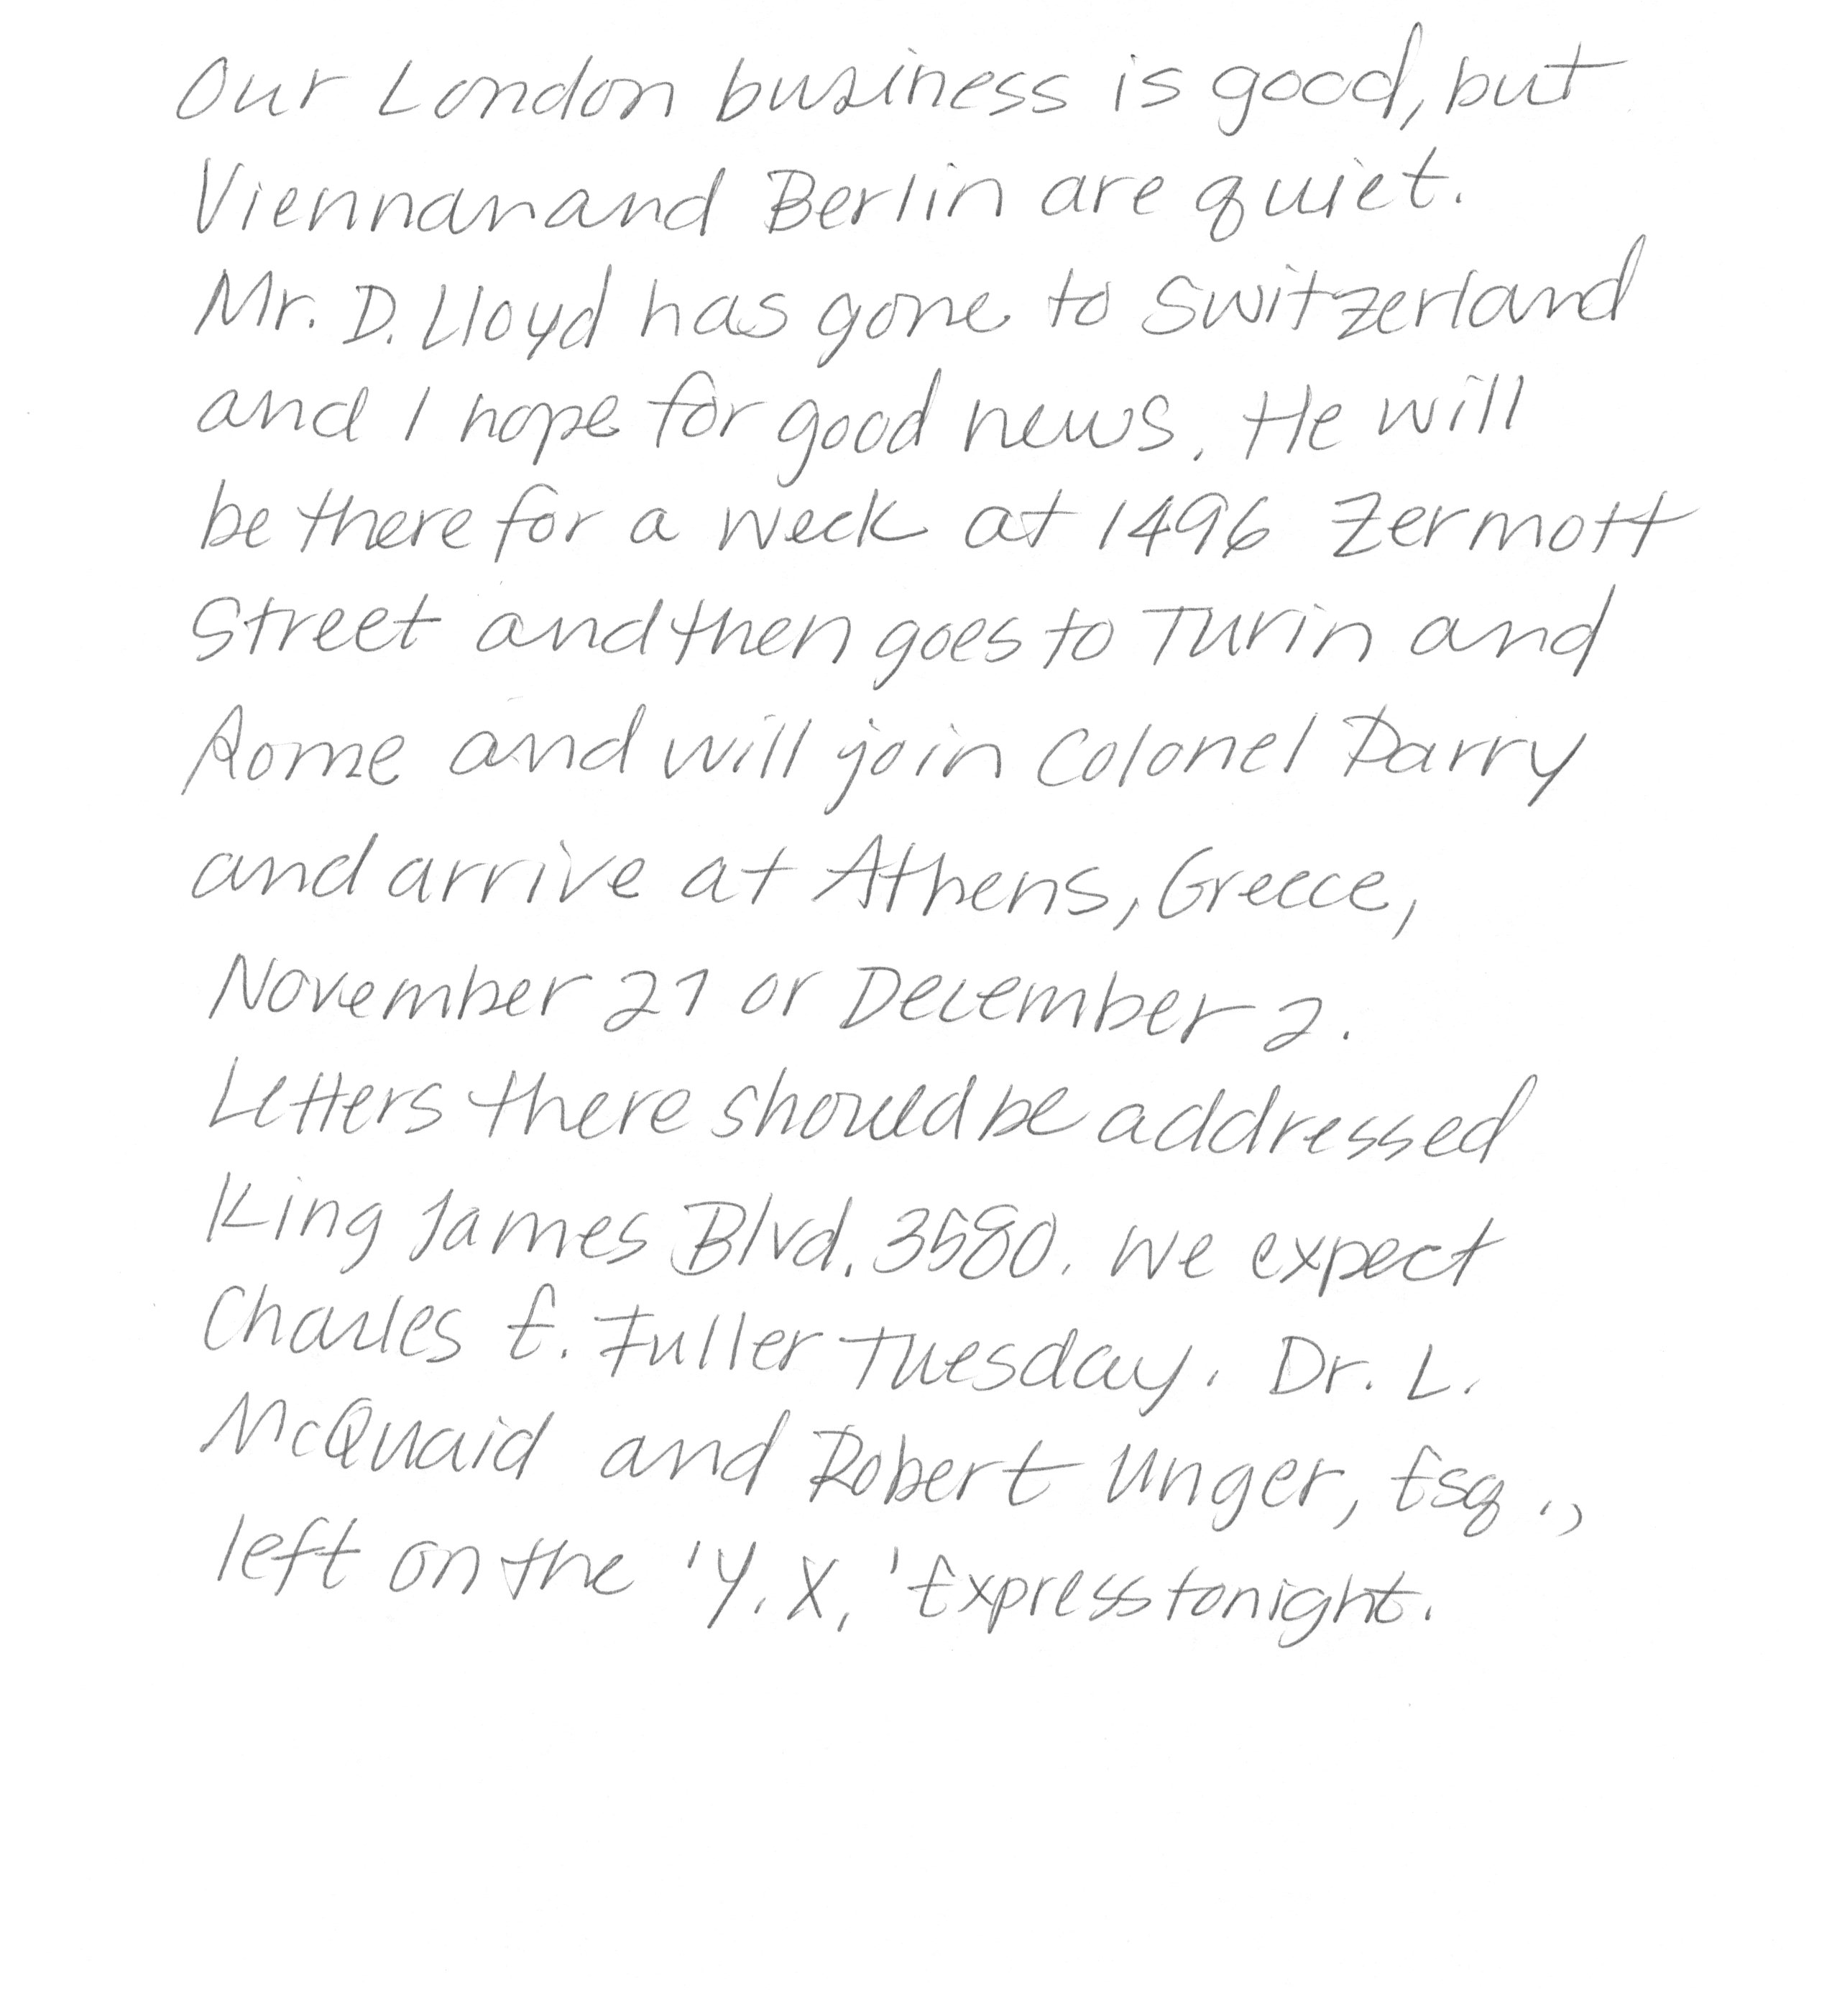 Our London business is good, but
Viennanand Berlin are quiet.
Mr. D. Lloyd has gone to Switzerland
and I hope for good news. He will
be there for a week at 1496 Zermott
Street and then goes to Turin and
Rome and will join Colonel Parry
and arrive at Athens, Greece,
November 27 or December 2.
Letters there should be addressed
King James Blvd. 3580. We expect
Charles E. Fuller Tuesday. Dr. L.
McQuaid and Robert Unger, Esq.,
left on the 'Y. X.' Express tonight.